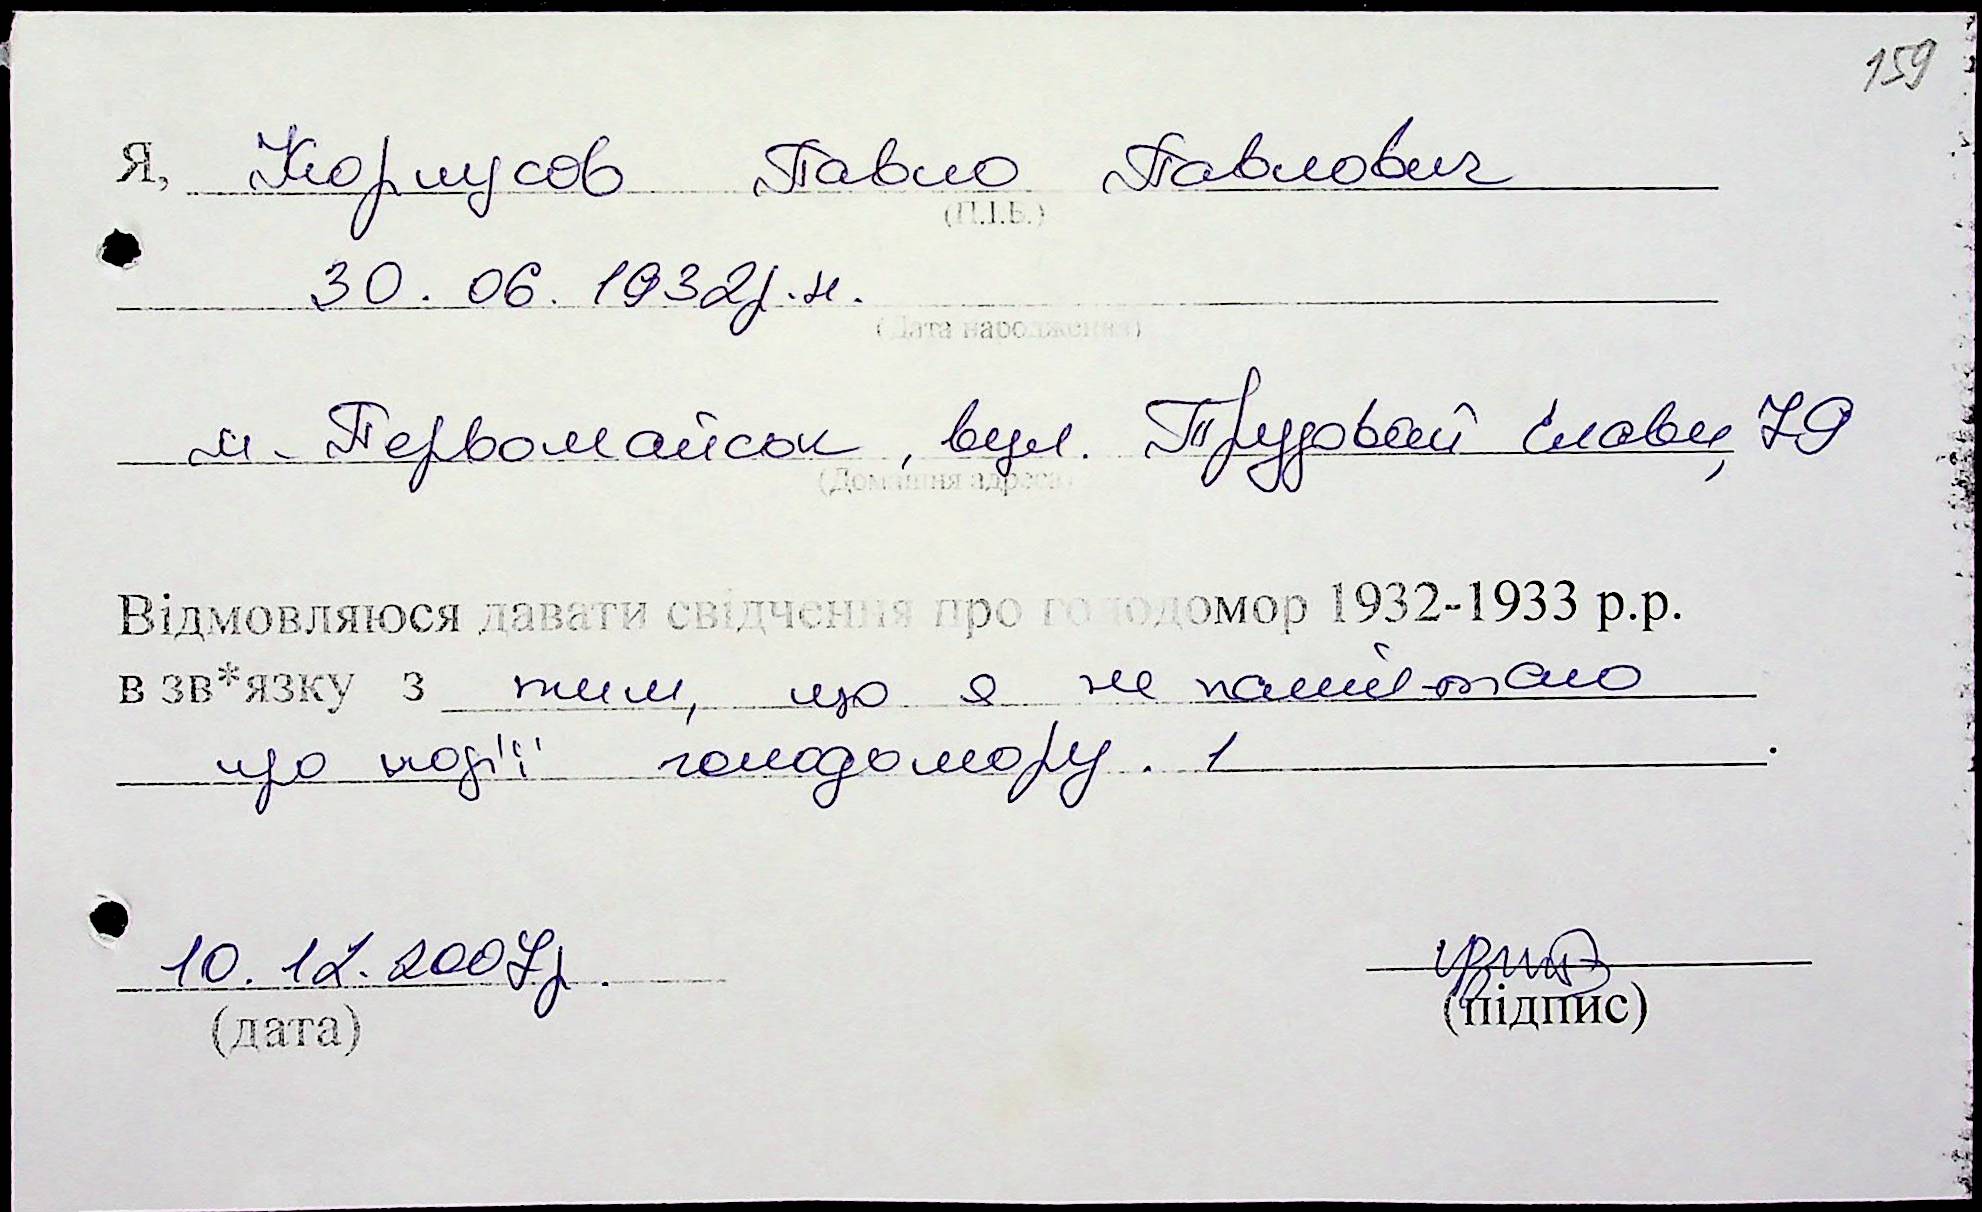 159
Я, Кормусов Павло Павлович
(П.І.Б.)
30. 06. 1932р.н.
(Дата народження)
м. Первомайськ, вул. Трудовой Славы, 79
(Домашня адреса)
Відмовляюся давати свідчення про голодомор 1932-1933 р.р.
в зв*язку з тим, що я не пам'ятаю
що події голодомору.
10. 12. 2007р.
(дата)
(підпис)